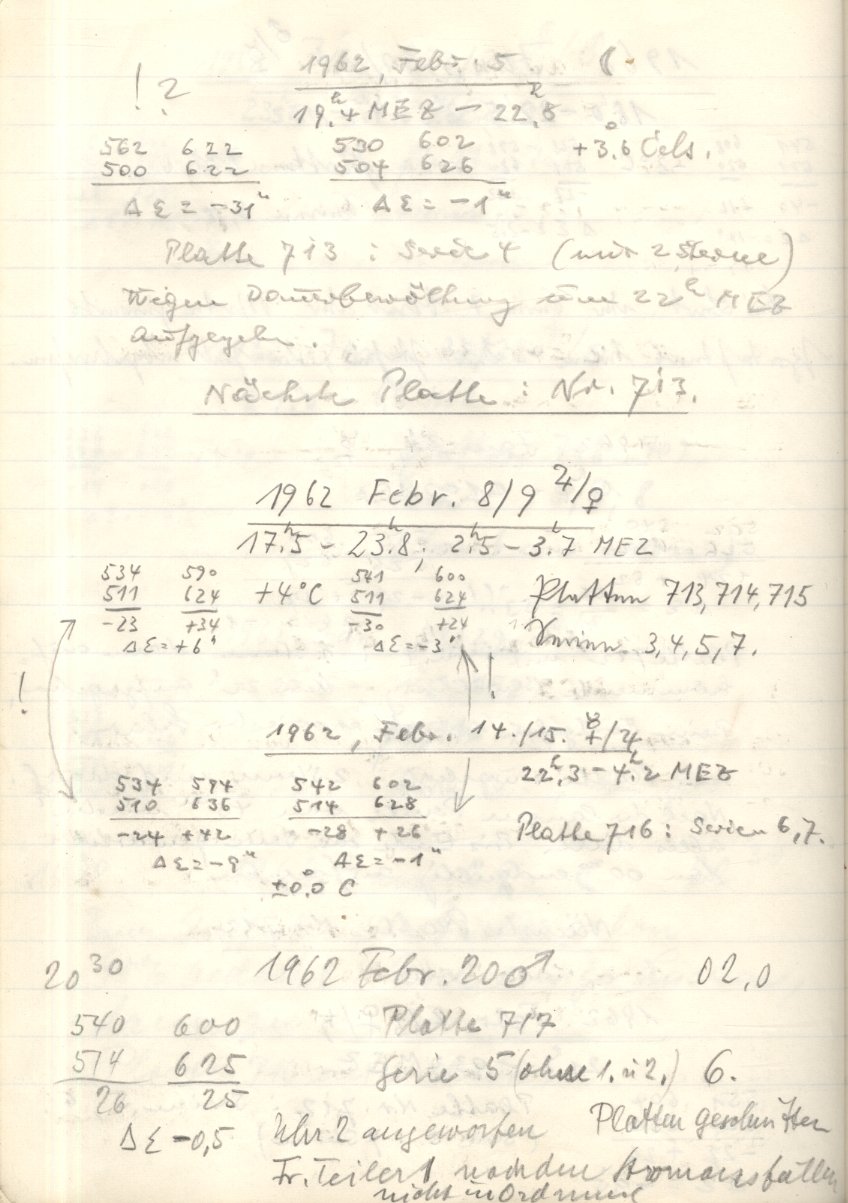 1962, Febr. 5 ☾
! ?
19,ʰ4 MEZ — 22,ʰ8
562 622 530 602 +3,°6 Cels.
500 622 504 626
Δε = -31" Δε = -1"
Platte 713 : Serie 4 (nur 2 Sterne)
Wegen Dauerbewölkung um 22ʰ MEZ
aufgegeben.
Nächste Platte : Nr. 713.
1962 Febr. 8/9 ♃/♀
17,ʰ5 - 23,ʰ8 ; 2,ʰ5 - 3,ʰ7 MEZ
534 590 +4°C 541 600
511 624 511 624 Platten 713, 714, 715
-23 +34 -30 +24
Δε = +6" Δε = -3" Serien 3, 4, 5, 7.
! !
1962, Febr. 14./15. ☿/♃
22,ʰ3 - 4,ʰ2 MEZ
534 594 542 602
510 636 514 628
-24 +42 -28 +26 Platte 716 : Serien 6, 7.
Δε = -9" Δε = -1"
±0,°0 C
20³⁰ 1962 Febr. 20 ♂ 02,0
540 600 Platte 717
514 625 Serie 5 (ohne 1. u 2.) 6.
26 25
Δε -0,5 Uhr 2 angeworfen Platten geschnitten
Fr. Teilert nach dem Stromausfall
nicht in Ordnung